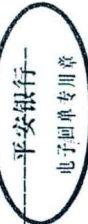 平安银行
电子回单专用章